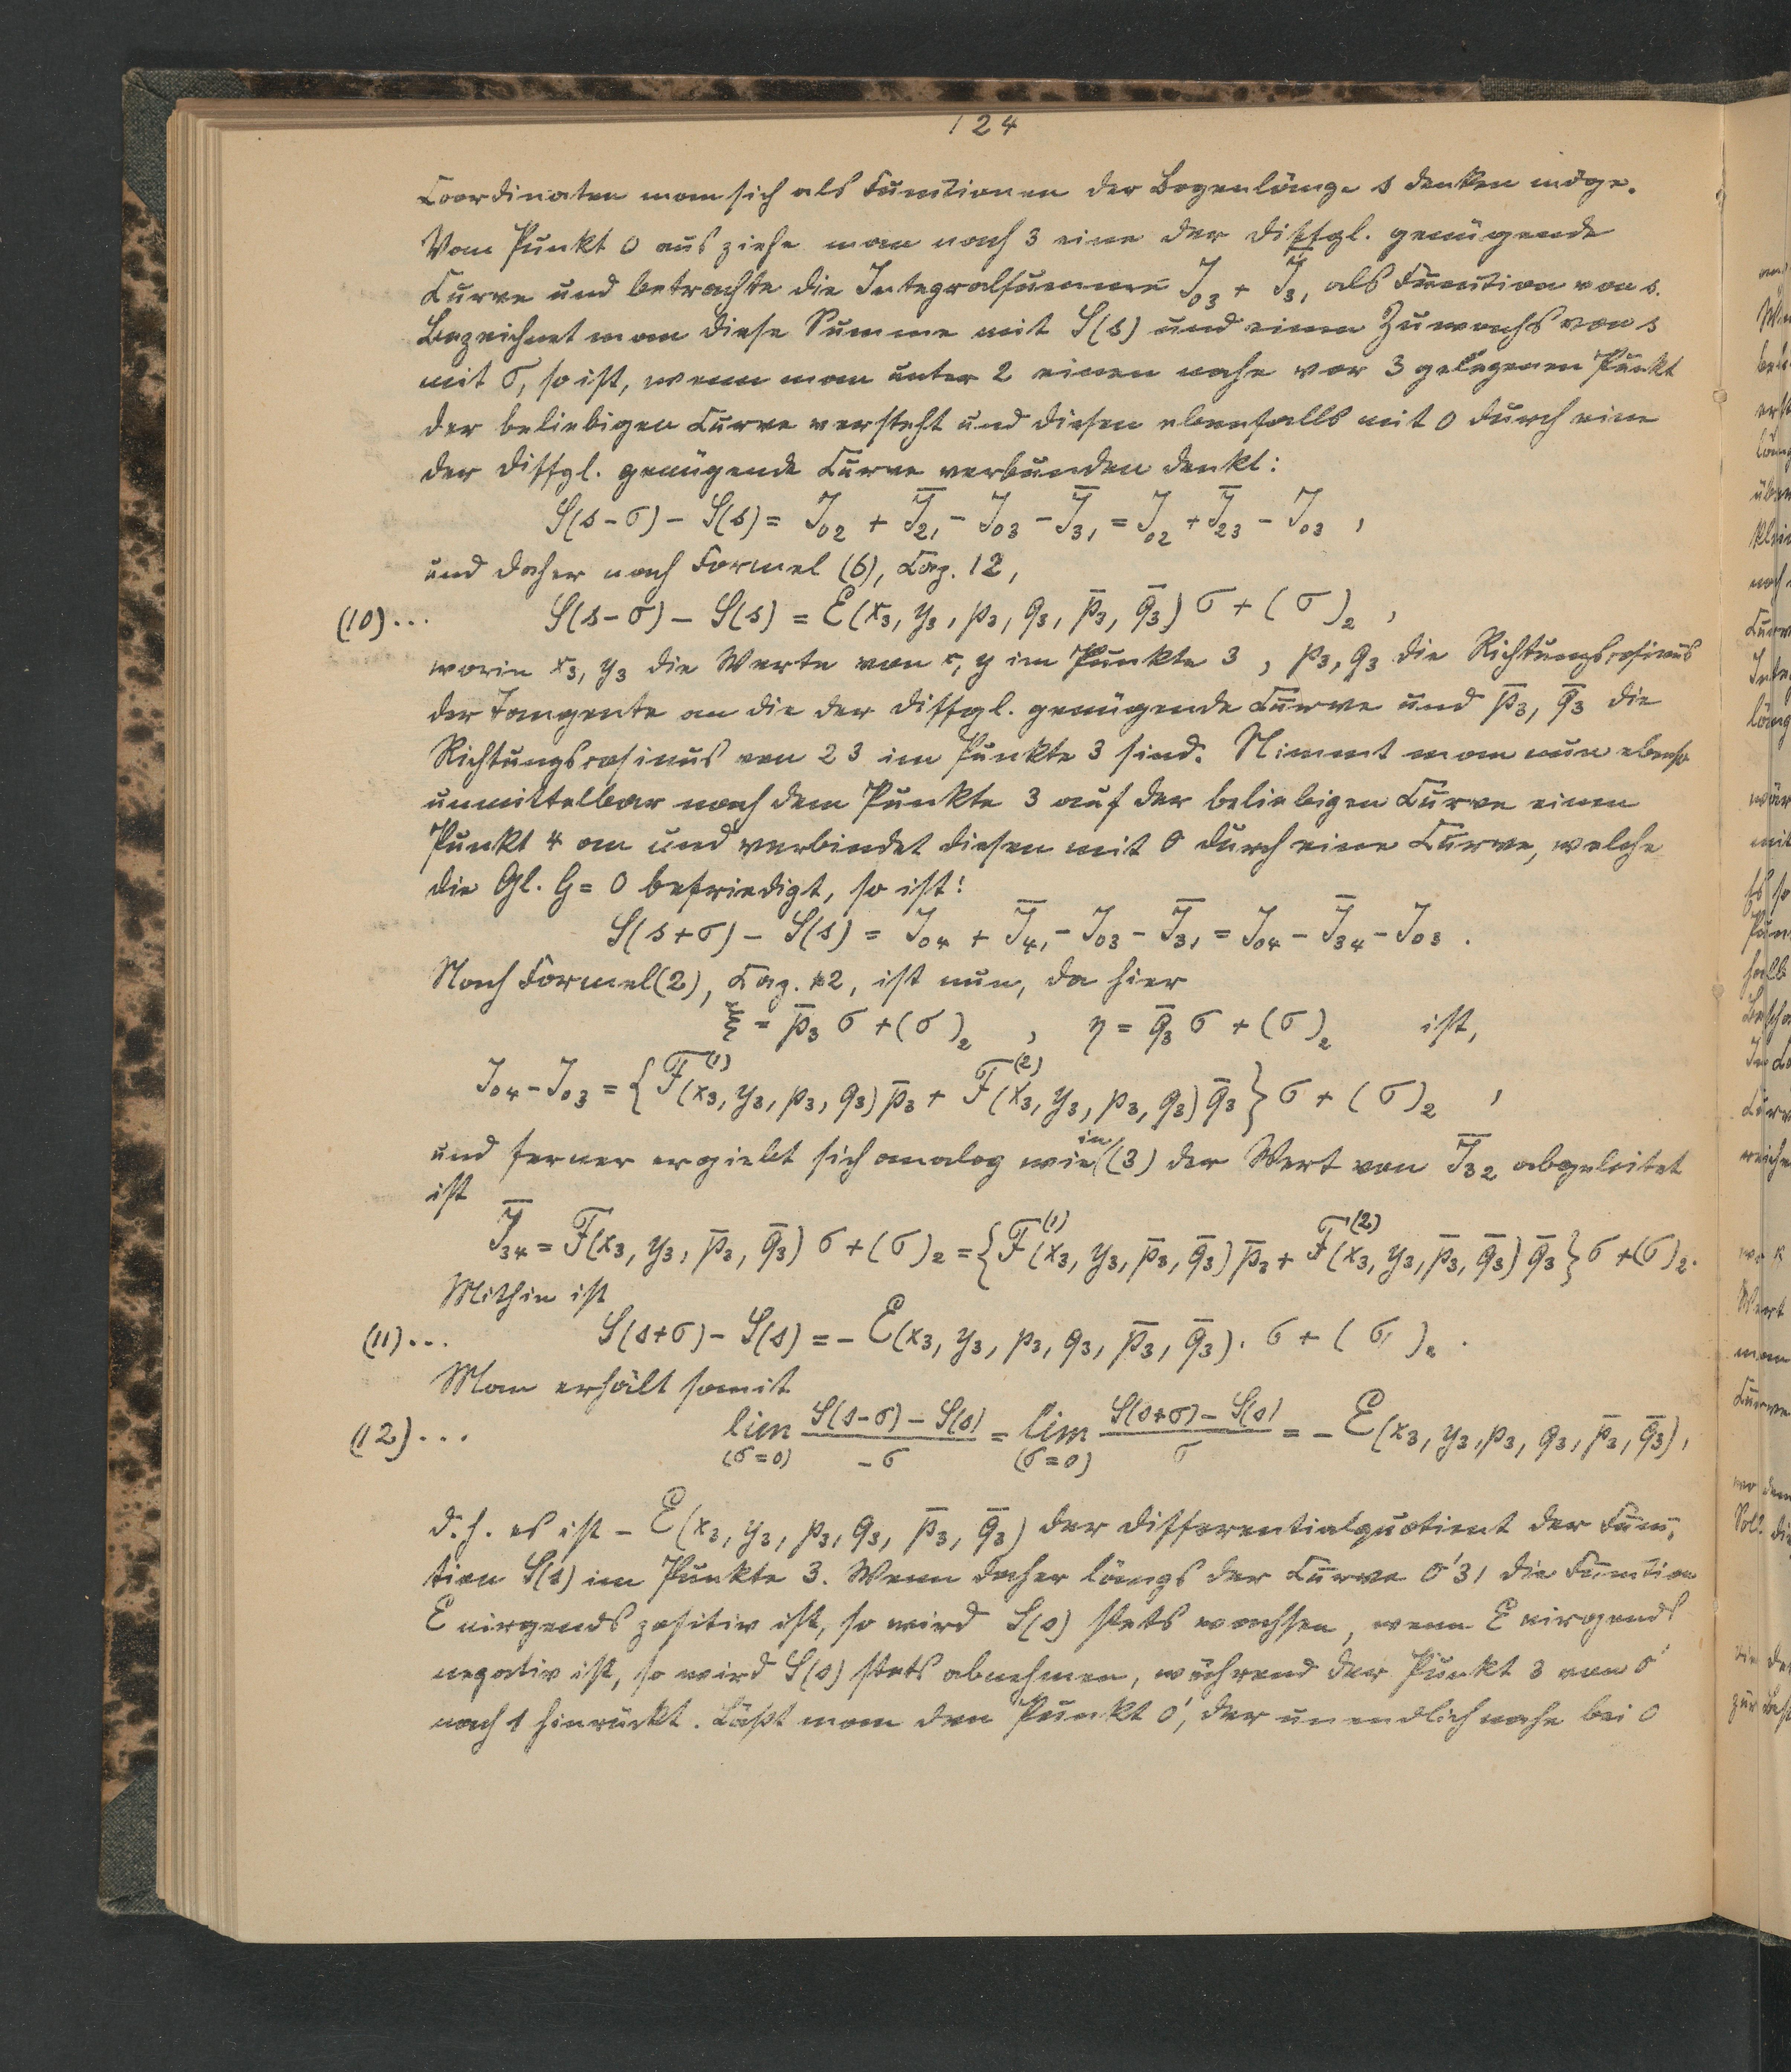 124
Coordinaten man sich als Functionen der Bogenlänge s denken möge.
Vom Punkt 0 aus ziehe man nach 3 eine der Diffgl. genügende
Curve und betrachte die Integralsumme J₀₃ + J̄₃₁ als Function von s.
Bezeichnet man diese Summe mit S(s) und einen Zuwachs von s
mit σ, so ist, wenn man unter 2 einen nahe vor 3 gelegenen Punkt
der beliebigen Curve versteht und diesen ebenfalls mit 0 durch eine
der Diffgl. genügende Curve verbunden denkt:
S(s-σ) - S(s) = J₀₂ + J̄₂₁ - J₀₃ - J̄₃₁ = J₀₂ + J̄₂₃ - J₀₃ ,
und daher nach Formel (6), Cap. 12,
(10)... S(s-σ) - S(s) = E(x₃, y₃, p₃, q₃, p̄₃, q̄₃) σ + (σ)₂ ,
worin x₃, y₃ die Werte von x, y im Punkte 3, p₃, q₃ die Richtungscosinus
der Tangente an die der Diffgl. genügende Curve und p̄₃, q̄₃ die
Richtungscosinus von 23 im Punkte 3 sind. Nimmt man nun ebenso
unmittelbar nach dem Punkte 3 auf der beliebigen Curve einen
Punkt 4 an und verbindet diesen mit 0 durch eine Curve, welche
die Gl. G = 0 befriedigt, so ist:
S(s+σ) - S(s) = J₀₄ + J̄₄₁ - J₀₃ - J̄₃₁ = J₀₄ - J̄₃₄ - J₀₃ .
Nach Formel (2), Cap. 12, ist nun, da hier
ξ = p̄₃ σ + (σ)₂ , η = q̄₃ σ + (σ)₂ ist,
J₀₄ - J₀₃ = {F⁽¹⁾(x₃, y₃, p₃, q₃) p̄₃ + F⁽²⁾(x₃, y₃, p₃, q₃) q̄₃} σ + (σ)₂ ,
und ferner ergiebt sich analog wie in (3) der Wert von J̄₃₂ abgeleitet
ist
J̄₃₄ = F(x₃, y₃, p̄₃, q̄₃) σ + (σ)₂ = {F⁽¹⁾(x₃, y₃, p̄₃, q̄₃) p̄₃ + F⁽²⁾(x₃, y₃, p̄₃, q̄₃) q̄₃} σ + (σ)₂.
Mithin ist
(11)... S(s+σ) - S(s) = - E(x₃, y₃, p₃, q₃, p̄₃, q̄₃). σ + (σ)₂ .
Man erhält somit
(12)... lim (σ=0) S(s-σ) - S(s) / -σ = lim (σ=0) S(s+σ) - S(s) / σ = - E(x₃, y₃, p₃, q₃, p̄₃, q̄₃),
d.h. es ist - E(x₃, y₃, p₃, q₃, p̄₃, q̄₃) der Differentialquotient der Func-
tion S(s) im Punkte 3. Wenn daher längs der Curve 0'31 die Function
E nirgends positiv ist, so wird S(s) stets wachsen, wenn E nirgends
negativ ist, so wird S(s) stets abnehmen, während der Punkt 3 von 0'
nach 1 hinrückt. Läßt man den Punkt 0', der unendlich nahe bei 0